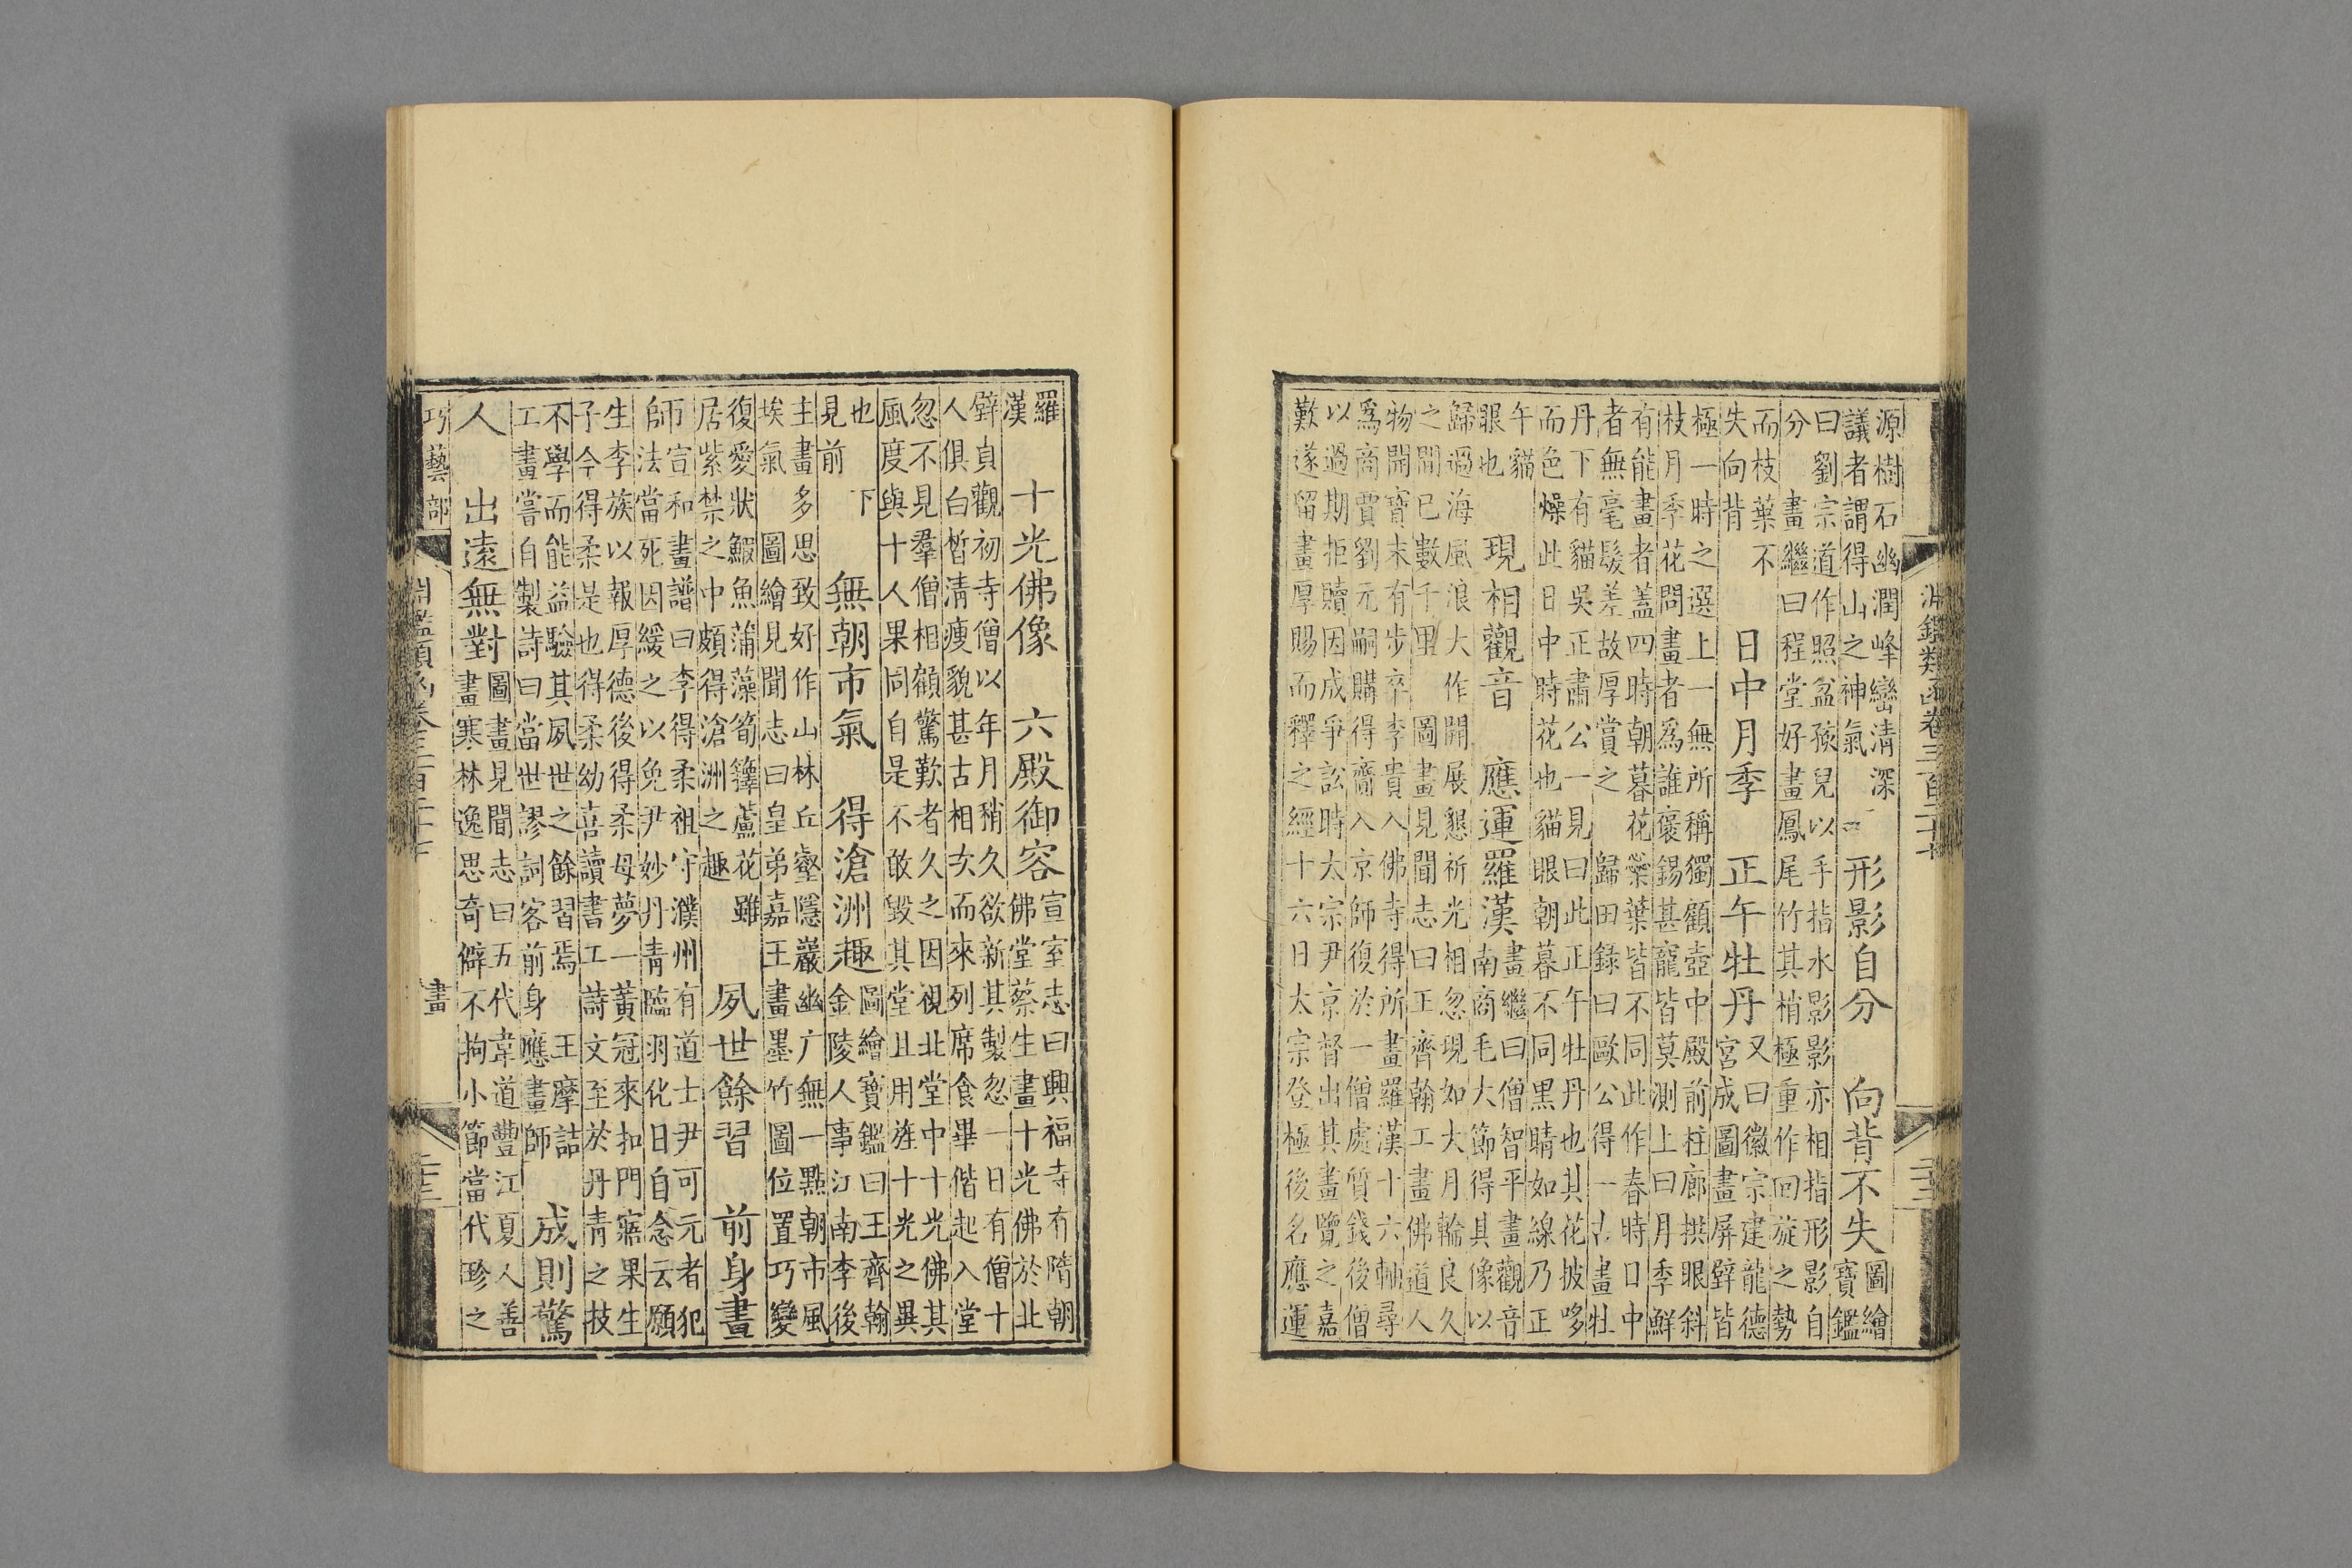 淵鑑類函卷三百二十七
源樹石幽潤峰巒清深
議者謂得山之神氣
形影自分　向背不失
圖繪
寶鑑
曰劉宗道作照盆孩兒以手指水影影亦相指形影自
分　畫繼曰程堂好畫鳳尾竹其梢極重作回旋之勢
而枝葉不
失向背
日中月季　正午牡丹
又曰徽宗建龍德
宮成圖畫屏壁皆
極一時之選上一無所稱獨顧壺中殿前柱廊拱眼斜
枝月季花問畫者爲誰褒錫甚寵皆莫測上曰月季鮮
有能畫者蓋四時朝暮花葉皆不同此作春時日中
者無毫髮差故厚賞之　歸田錄曰歐公得一古畫牡
丹下有貓吳正肅公一見曰此正午牡丹也其花披哆
而色燥此日中時花也貓眼朝暮不同黑睛如線乃正
午貓
眼也
現相觀音　應運羅漢
畫繼曰僧智平畫觀音
南商毛大節得其像以
歸過海風浪大作開展懇祈光相忽現如大月輪良久
之間已數千里　圖畫見聞志曰王齊翰工畫佛道人
物開寶末有步卒李貴入佛寺得所畫羅漢十六軸尋
爲商賈劉元嗣購得齎入京師復於一僧處質錢後僧
以過期拒贖因成爭訟時太宗尹京督出其畫覽之嘉
歎遂留畫厚賜而釋之經十六日太宗登極後名應運
羅
漢
十光佛像　六殿御容
宣室志曰興福寺有隋朝
佛堂蔡生畫十光佛於北
壁貞觀初寺僧以年月稍久欲新其製忽一日有僧十
人俱白皙清瘦貌甚古相次而來列席食畢偕起入堂
忽不見羣僧相顧驚歎者久之因視北堂中十光佛其
風度與十人果同自是不敢毀其堂且用旌十光之異
也　下
見前
無朝市氣　得滄洲趣
圖繪寶鑑曰王齊翰
金陵人事江南李後
主畫多思致好作山林丘壑隱巖幽广無一點朝市風
埃氣　圖繪見聞志曰皇弟嘉王畫墨竹圖位置巧變
復愛狀鰕魚蒲藻筍籜蘆花雖
居紫禁之中頗得滄洲之趣
夙世餘習　前身畫
師
宣和畫譜曰李得柔祖守濮州有道士尹可元者犯
法當死因緩之以免尹妙丹青臨羽化日自念云願
生李族以報厚德後得柔母夢一黃冠來扣門寤果生
子今得柔是也得柔幼喜讀書工詩文至於丹青之技
不學而能益驗其夙世之餘習焉　王摩詰
工畫嘗自製詩曰當世謬詞客前身應畫師
成則驚
人　出遠無對
圖畫見聞志曰五代韋道豐江夏人善
畫寒林逸思奇僻不拘小節當代珍之
巧藝部　淵鑑類函卷三百二十七　畫